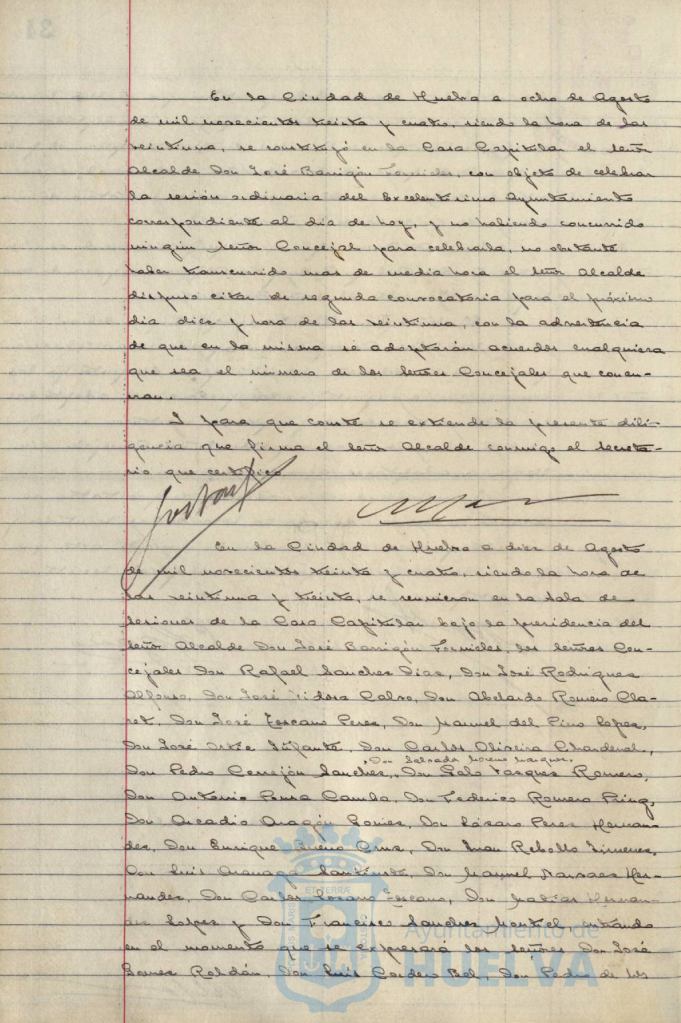 En la Ciudad de Huelva a ocho de Agosto
de mil novecientos treinta y cuatro, siendo la hora de las
veintiuna, se constituyó en la Casa Capitular el señor
Alcalde Don José Barrigón Fornieles, con objeto de celebrar
la sesión ordinaria del Excelentísimo Ayuntamiento
correspondiente al dia de hoy, y no habiendo concurrido
ningún señor Concejal para celebrarla, no obstante
haber transcurrido mas de media hora el señor Alcalde
dispuso citar de segunda convocatoria para el próximo
dia diez y hora de las veintiuna, con la advertencia
de que en la misma se adoptarán acuerdos cualquiera
que sea el número de los señores Concejales que concu-
rran.
Y para que conste se extiende la presente dili-
gencia que firma el señor Alcalde conmigo el Secreta-
rio que certifico
En la Ciudad de Huelva a diez de Agosto
de mil novecientos treinta y cuatro, siendo la hora de
las veintiuna y treinta, se reunieron en la Sala de
Sesiones de la Casa Capitular bajo la presidencia del
señor Alcalde Don José Barrigón Fornieles, los señores Con-
cejales Don Rafael Sanchez Diaz, Don José Rodriguez
Alfonso, Don José Tidora Calvo, Don Abelardo Romero Cla-
ret, Don José Toscano Perez, Don Manuel del Pino Lopez,
Don José Ortiz Infante, Don Carlos Oliveira Chardenal,
Don Salvador Moreno Marquez,
Don Pedro Cerrejón Sanchez, Don Galo Vazquez Romero,
Don Antonio Pousa Camba, Don Federico Romero
Don Arcadio Aragón Gomez, Don Lázaro Perez Hernan-
dez, Don Enrique Bueno Cruz, Don Juan Rebollo Jimenez,
Don Luis Don Manuel Narvaez Her-
nandez, Don Carlos Lozano Toscano, Don Matías Hernan-
dez Lopez y Don Francisco Sanchez entrando
en el momento que se expresará los señores Don José
Gomez Roldán, Don Luis Cordero Bel, Don Pedro de los
Ayuntamiento de
HUELVA